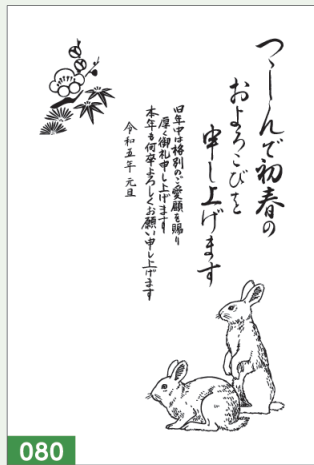 つゝしんで初春の
およろこびを
申し上げます
旧年中は格別のご愛顧を賜り
厚く御礼申し上げます
本年も何卒よろしくお願い申し上げます
令和五年 元旦
080